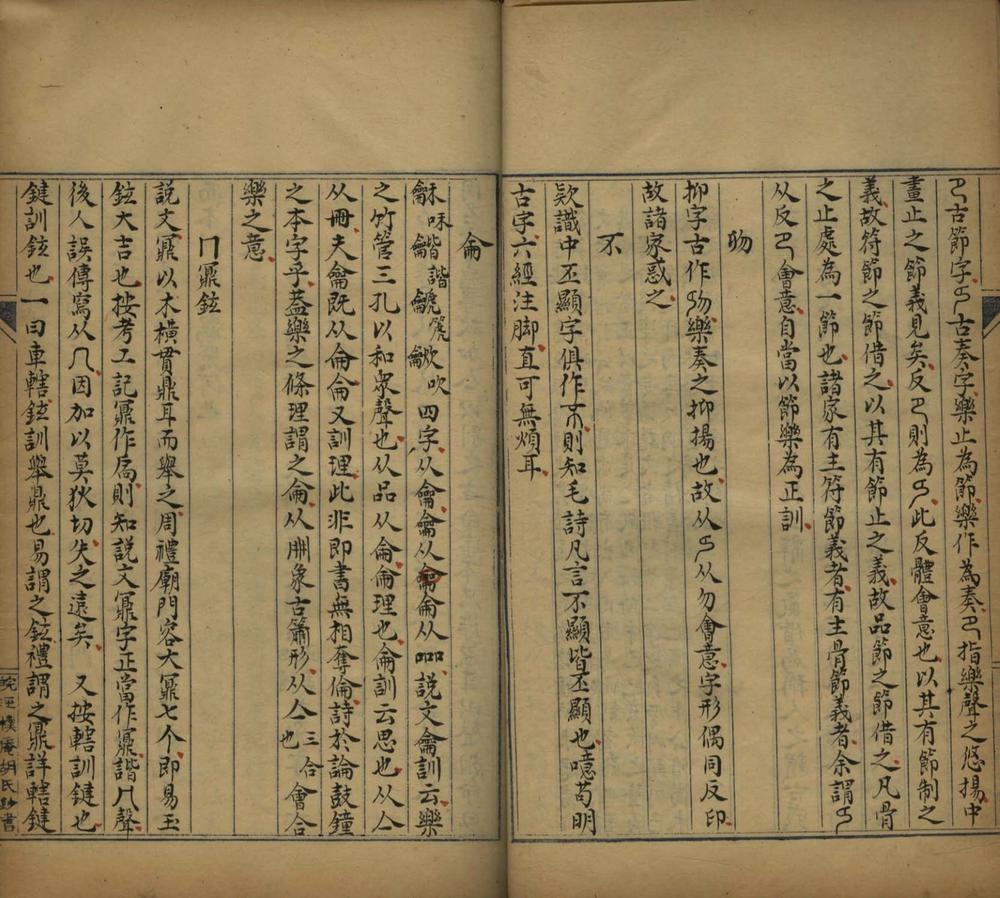 卪古節字𠨎古奏字樂止為節樂作為奏卪指樂聲之悠揚中
畫止之節義見矣反卪則為𠨎此反體會意也以其有節制之
義故符節之節借之以其有節止之義故品節之節借之凡骨
之止處為一節也諸家有主符節義者有主骨節義者余謂𠨎
从反卪會意自當以節樂為正訓
抑字古作樂奏之抑揚也故从𠨎从勿會意字形偶同反印
故諸家惑之
不
欵識中丕顯字俱作則知毛詩凡言不顯皆丕顯也噫苟明
古字六經注脚直可無煩耳
侖
龢咊龤諧龥籲龡吹四字从龠龠从侖侖从吅說文龠訓云樂
之竹管三孔以和眾聲也从品从侖侖理也侖訓云思也从亼
从冊夫龠既从侖侖又訓理此非即書無相奪倫詩於論鼓鐘
之本字乎葢樂之條理謂之侖从𠕋象古簫形从亼三合也會合
樂之意
冂鼏鉉
說文鼏以木橫貫鼎耳而舉之周禮廟門容大鼏七个即易玉
鉉大吉也按考工記鼏作扃則知說文鼏字正當作鼏諧冂聲
後人誤傳寫从冂因加以莫狄切失之遠矣 又按轄訓鍵也
鍵訓鉉也一曰車轄鉉訓舉鼎也易謂之鉉禮謂之鼏詳轄鍵
皖江樸庵胡氏鈔書